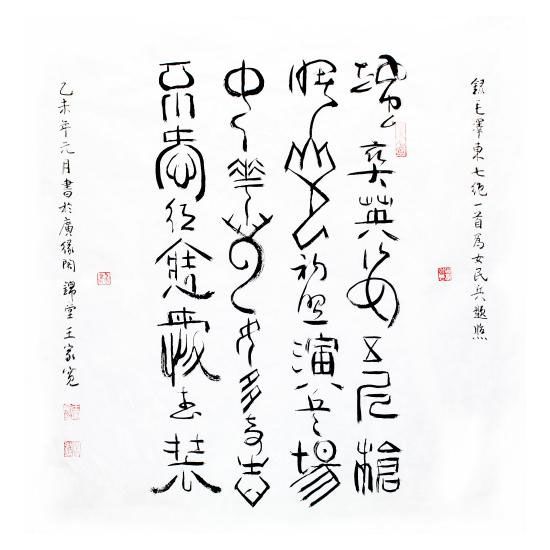 錄毛澤東七絕一首為女民兵題照
颯爽英姿五尺槍
曙光初照演兵場
中華兒女多奇志
不愛紅裝愛武裝
乙未年元月書於廣緣閣錦堂王家寬